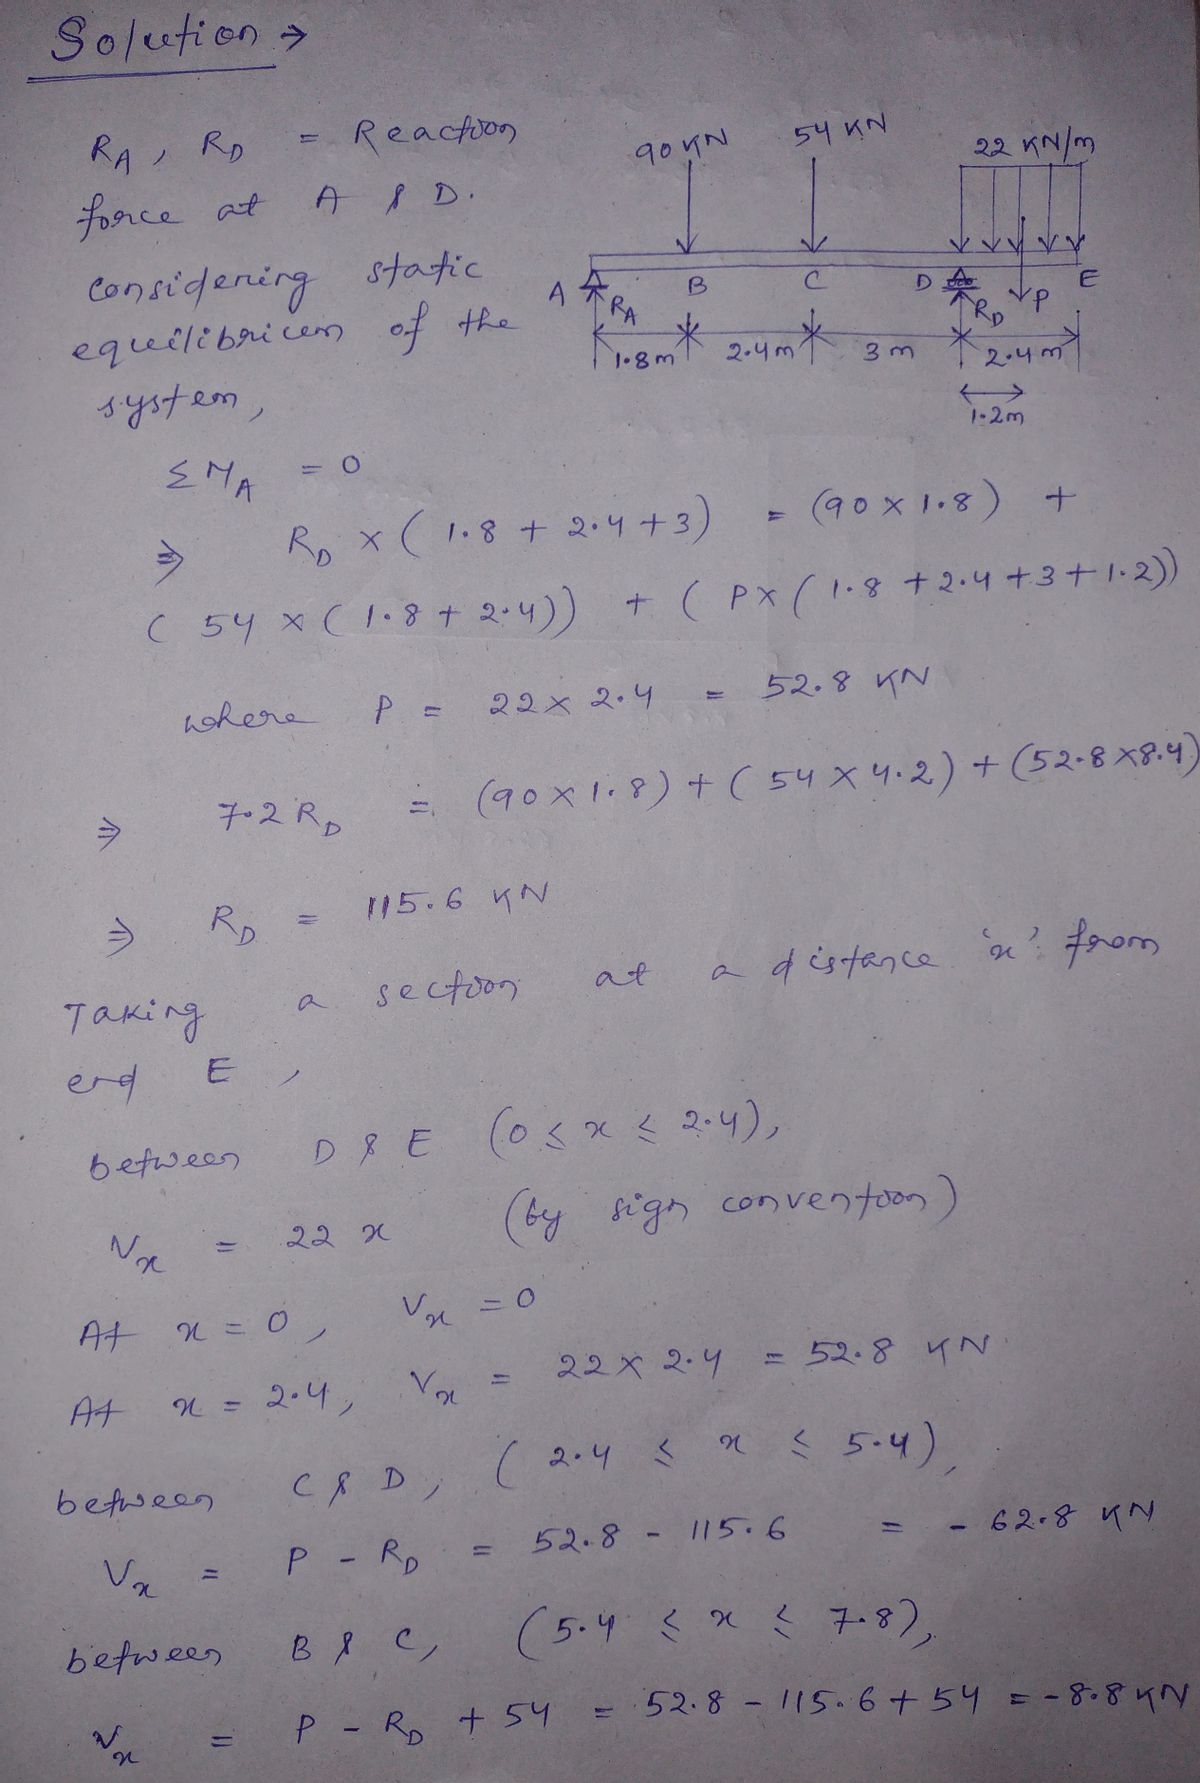 Solution →
R_A, R_D = Reaction
force at A & D.
considering static
equilibrium of the
system,
90 KN 54 KN 22 KN/m
A B C D E
R_A R_D P
1.8m 2.4m 3m 2.4m
1.2m
ΣM_A = 0
⇒ R_D × (1.8 + 2.4 + 3) = (90 × 1.8) +
(54 × (1.8 + 2.4)) + (P × (1.8 + 2.4 + 3 + 1.2))
where P = 22 × 2.4 = 52.8 KN
⇒ 7.2 R_D = (90 × 1.8) + (54 × 4.2) + (52.8 × 8.4)
⇒ R_D = 115.6 KN
Taking a section at a distance 'x' from
end E,
between D & E (0 ≤ x ≤ 2.4),
V_x = 22 x (by sign convention)
At x = 0, V_x = 0
At x = 2.4, V_x = 22 × 2.4 = 52.8 KN
between C & D, (2.4 ≤ x ≤ 5.4),
V_x = P - R_D = 52.8 - 115.6 = - 62.8 KN
between B & C, (5.4 ≤ x ≤ 7.8),
V_x = P - R_D + 54 = 52.8 - 115.6 + 54 = -8.8 KN